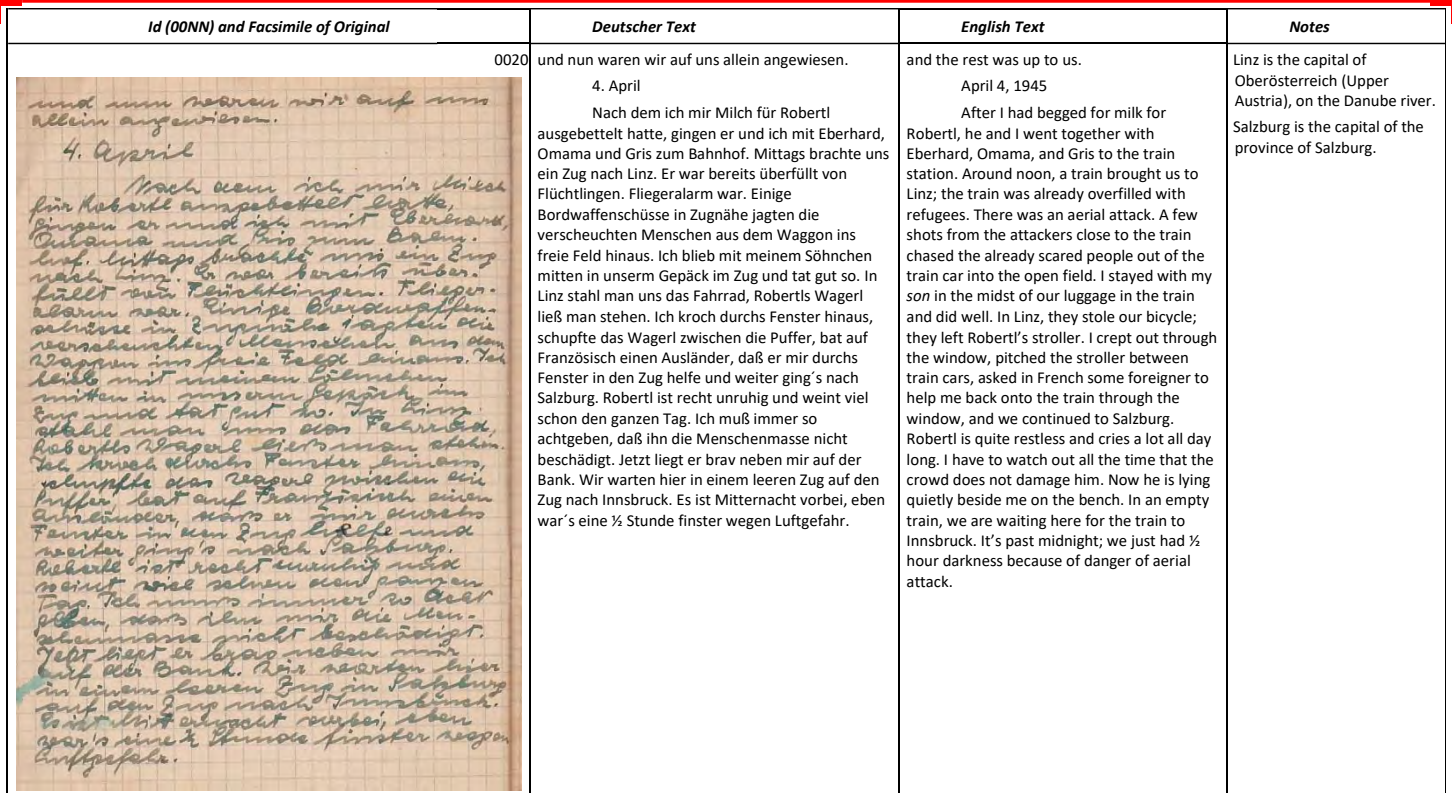 Id (00NN) and Facsimile of Original
Deutscher Text
English Text
Notes
0020
und nun waren wir auf uns
allein angewiesen.
4. April
Nach dem ich mir Milch
für Robertl ausgebettelt hatte,
gingen er und ich mit Eberhard,
Omama und Gris zum Bahn-
hof. Mittags brachte uns ein Zug
nach Linz. Er war bereits über-
füllt von Flüchtlingen. Flieger-
alarm war. Einige Bordwaffen-
schüsse in Zugnähe jagten die
verscheuchten Menschen aus dem
Waggon ins freie Feld hinaus. Ich
blieb mit meinem Söhnchen
mitten in unserm Gepäck im
Zug und tat gut so. In Linz
stahl man uns das Fahrrad,
Robertls Wagerl ließ man stehen.
Ich kroch durchs Fenster hinaus,
schupfte das Wagerl zwischen die
Puffer, bat auf Französisch einen
Ausländer, dass er mir durchs
Fenster in den Zug helfe und
weiter ging's nach Salzburg.
Robertl ist recht unruhig und
weint viel schon den ganzen
Tag. Ich muss immer so acht
geben, dass ihn mir die Men-
schenmasse nicht beschädigt.
Jetzt liegt er brav neben mir
auf der Bank. Wir warten hier
in einem leeren Zug in Salzburg
auf den Zug nach Innsbruck.
Es ist Mitternacht vorbei, eben
war's eine ½ Stunde finster wegen
Luftgefahr.
und nun waren wir auf uns allein angewiesen.
4. April
Nach dem ich mir Milch für Robertl
ausgebettelt hatte, gingen er und ich mit Eberhard,
Omama und Gris zum Bahnhof. Mittags brachte uns
ein Zug nach Linz. Er war bereits überfüllt von
Flüchtlingen. Fliegeralarm war. Einige
Bordwaffenschüsse in Zugnähe jagten die
verscheuchten Menschen aus dem Waggon ins
freie Feld hinaus. Ich blieb mit meinem Söhnchen
mitten in unserm Gepäck im Zug und tat gut so. In
Linz stahl man uns das Fahrrad, Robertls Wagerl
ließ man stehen. Ich kroch durchs Fenster hinaus,
schupfte das Wagerl zwischen die Puffer, bat auf
Französisch einen Ausländer, daß er mir durchs
Fenster in den Zug helfe und weiter ging´s nach
Salzburg. Robertl ist recht unruhig und weint viel
schon den ganzen Tag. Ich muß immer so
achtgeben, daß ihn die Menschenmasse nicht
beschädigt. Jetzt liegt er brav neben mir auf der
Bank. Wir warten hier in einem leeren Zug auf den
Zug nach Innsbruck. Es ist Mitternacht vorbei, eben
war´s eine ½ Stunde finster wegen Luftgefahr.
and the rest was up to us.
April 4, 1945
After I had begged for milk for
Robertl, he and I went together with
Eberhard, Omama, and Gris to the train
station. Around noon, a train brought us to
Linz; the train was already overfilled with
refugees. There was an aerial attack. A few
shots from the attackers close to the train
chased the already scared people out of the
train car into the open field. I stayed with my
son in the midst of our luggage in the train
and did well. In Linz, they stole our bicycle;
they left Robertl’s stroller. I crept out through
the window, pitched the stroller between
train cars, asked in French some foreigner to
help me back onto the train through the
window, and we continued to Salzburg.
Robertl is quite restless and cries a lot all day
long. I have to watch out all the time that the
crowd does not damage him. Now he is lying
quietly beside me on the bench. In an empty
train, we are waiting here for the train to
Innsbruck. It’s past midnight; we just had ½
hour darkness because of danger of aerial
attack.
Linz is the capital of
Oberösterreich (Upper
Austria), on the Danube river.
Salzburg is the capital of the
province of Salzburg.